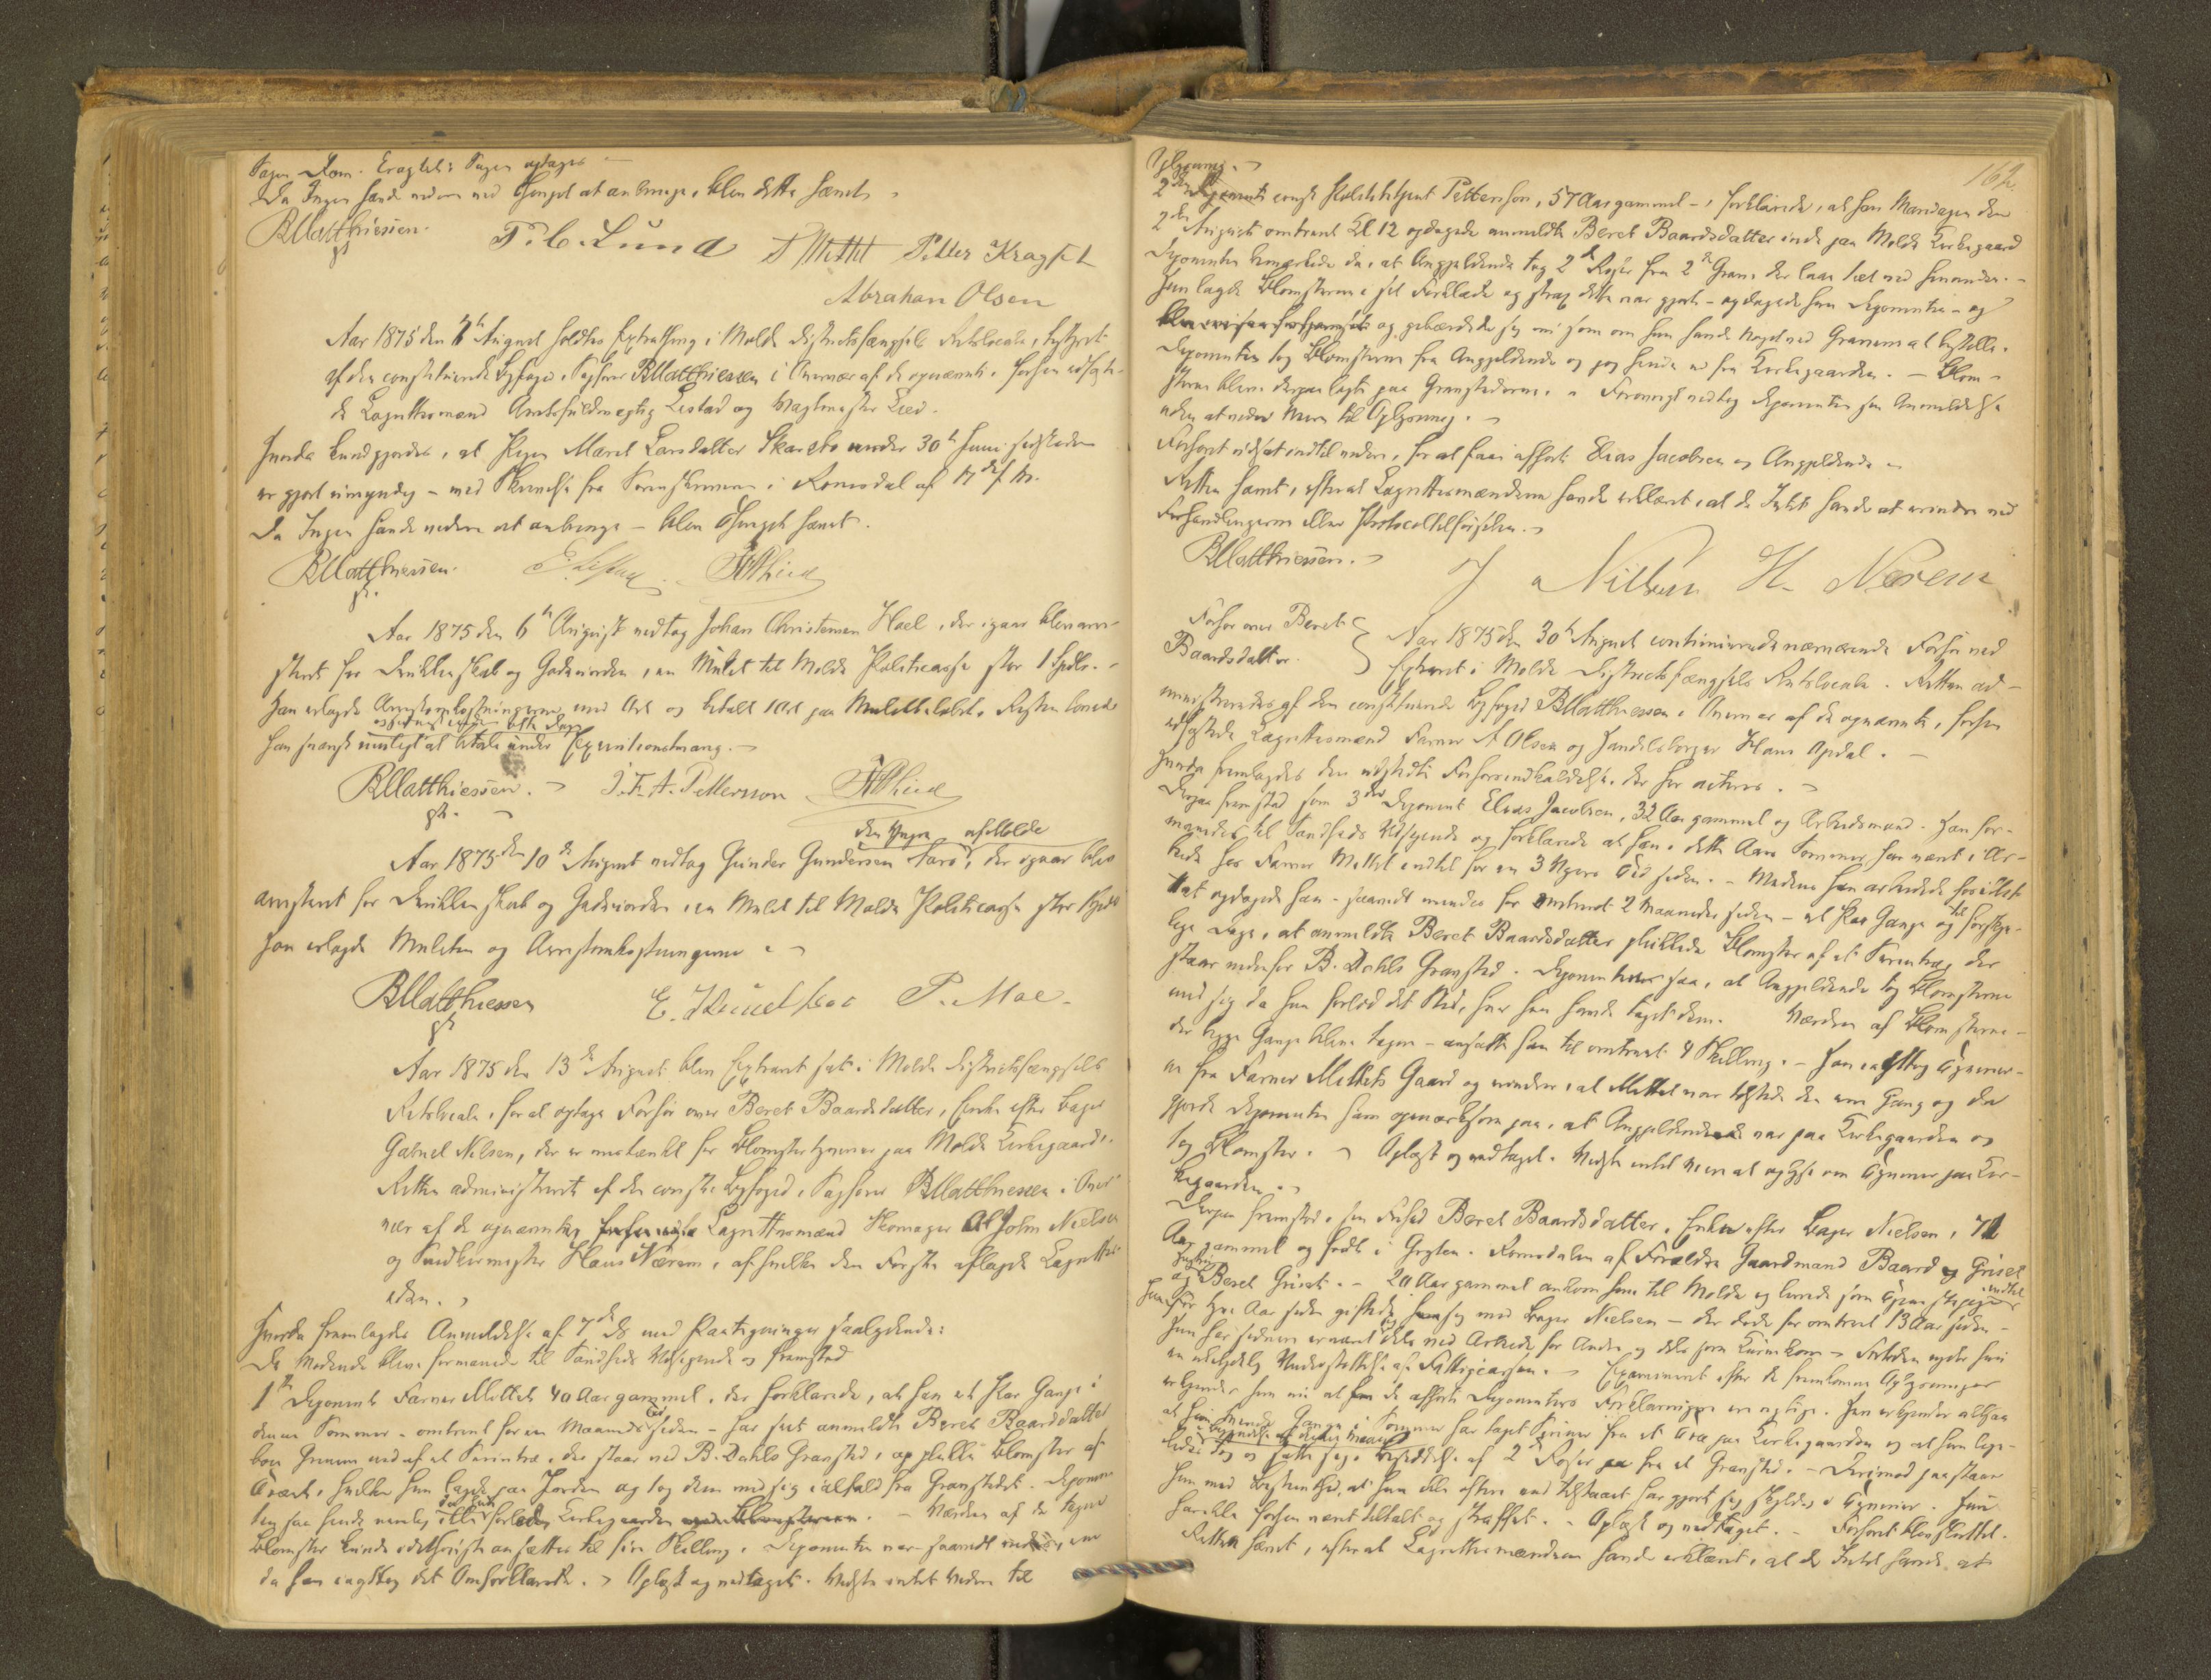 Sagen Dom. Eragtet: Sagen optages
Da Ingen havde videre ved Thinget at anbringe, blev dette hævet.
BMatthiessen.
P. C. Lund Petter Kragset
Abraham Olsen
Aar 1875 den August holdtes Extrathing i Molde Distriktsfængsels Retslocale, bestyret
af den constituerede Byfoged, Sagfører BMatthiessen i Overvær af de opnævnte, forhen edfæste-
de Lagrettesmænd Amtsfuldmægtig Listad og Vagtmester Lied.
Hvorda kundgjordes, at Pigen Marit Larsdatter Skareto under 30te Juni sidstleden
er gjort umyndig – med Skrivelse fra Sorenskriveren i Romsdal af
Da Ingen havde videre at anbringe – blev Thinget hævet.
BMatthiessen.
Aar 1875 den 6te August vedtog Johan Christensen Hoel, der igaar blev arre-
steret for Drukkenskab og Gadeuorden, en Mulct til Molde Politicasse stor 1 Spdlr. –
Han erlagde Arrestomkostningerne med Ort og betalt 1 Ort paa Mulctbeløbet. Resten lovede
han snarest muligt at betale under Executionstvang. –
BMatthiessen. J. F. A. Pettersson
den Yngre af Molde
Aar 1875 den 10de August vedtog Gunder Gundersen, der igaar blev
arresteret for Drukkenskab og Gadeuorden, en Mulct til Molde Politicasse stor
Han erlagde Mulcten og Arrestomkostningerne.
BMatthiessen P. Moe.
Aar 1875 den 13de August blev Extraret sat i Molde Distriktsfængsels
Retslocale, for at optage Forhør over Beret Baardsdatter, Enke efter Bager
Gabriel Nilsen, der er mistænkt for Blomstertyverier paa Molde Kirkegaard.
Retten administreret af den const. Byfoged, Sagfører BMatthiessen i Over-
vær af de opnævnte Lagrettesmænd Skomager John Nielsen
og Hans Nærem, af hvilke den Første aflagde Lagrettes-
eden.
Hvorda fremlagdes Anmeldelse af 7de ds med Paategninger saalydende:
De Mødende bleve formanede til Sandheds Udsigende og fremstod
1ste Deponent Farver Mittet 40 Aar gammel, der forklarede, at han et Par Gange i
denne Sommer – omtrent for en Maaneds Tid siden – har seet anmeldte Beret Baardsdatter
bøie Grenen ned af et Syrintræ, der staar ved B. Dahls Gravsted, og plukke Blomster af
Træet, hvilke hun lagde paa Jorden og tog dem med sig ialfald fra Gravstedet. Deponen-
ten saa hende nemlig ikke forlade Kirkegaarden. – Værdien af de tagne
Blomster kunde ansættes til fire Skilling. Deponenten var
da han iagttog det Omforklarede. Oplæst og vedtaget. Vidste intet videre til
162.
Oplysning.
2den Deponent const. Politibetjent Pettersson, 57 Aar gammel –, forklarede, at han Mandagen den
2den August omtrent Kl 12 opdagede anmeldte Beret Baardsdatter inde paa Molde Kirkegaard
Deponenten bemærkede da, at Angjeldende tog 2de Roser fra 2de Grave, der laae tæt ved hinanden. –
Hun lagde Blomsterne i sit Forklæde og strax dette var gjort – opdagede hun Deponenten – og
og gebærdede sig nu som om hun havde Noget ved Gravene at bestille.
Deponenten tog Blomsterne fra Angjeldende og jog hende ud fra Kirkegaarden. – Blom-
sterne bleve derpaa lagte paa Gravstederne. – Forøvrigt vedtog Deponenten sin Anmeldelse
uden at vide Mere til Oplysning.
Forhøret udsat indtil videre, for at faae afhørt Elias Jacobsen og Angjeldende.
Retten hævet, efterat Lagrettesmændene havde erklæret, at de Intet havde at erindre ved
Forhandlingerne eller Protocoltilførselen.
BMatthiessen. J Nilsen H. Nærem
Forhør over Beret
Baardsdatter.
Aar 1875 den 30te August continueredes nærværende Forhør ved
Extraret i Molde Distriktsfængsels Retslocale. Retten ad-
ministreredes af den constituerede Byfoged BMatthiessen i Overvær af de opnævnte, forhen
edfæstede Lagrettesmænd Farver A Olsen og Handelsborger Hans Opdal. –
Hvorda fremlagdes den udstedte Forhørsindkaldelse, der her acteres.
Derpaa fremstod som 3die Deponent Elias Jacobsen, 32 Aar gammel og Arbeidsmand. Han for-
manedes til Sandheds Udsigende og forklarede at han i dette Aars Sommer har været i Ar-
beide hos Farver Mittet indtil for en 3 Ugers Tid siden. – Medens han arbeidede for Mit-
tet opdagede han – saavidt mindes for omtrent 2 Maaneder siden – et Par Gange og til forskjel-
lige Dage, at anmeldte Beret Baardsdatter plukkede Blomster af et Syrintræ, der
staar nedenfor B. Dahls Gravsted. Deponenten saa, at Angjeldende tog Blomsterne
med sig da hun forlod det Sted, hvor hun havde taget dem. Værdien af Blomsterne –
der begge Gange bleve tagne – ansatte han til omtrent 4 Skilling. – Han iagttog Tyveri-
er fra Farver Mittets Gaard og erindrer, at Mittet var tilstede den ene Gang og da
gjorde Deponenten ham opmærksom paa, at Angjeldende var paa Kirkegaarden og
tog Blomster. Oplæst og vedtaget. Vidste intet Mere at oplyse om Tyverier paa Kir-
kegaarden.
Derpaa fremstod, som Arresteret Beret Baardsdatter, Enke efter Bager Nielsen, 71
Aar gammel og født i Grytten, Romsdalen af Forældre Gaardmand Baard og
Hustru Beret. – 20 Aar gammel ankom hun til Molde og levede som Tjenestepige indtil
hun for Aar siden giftede sig med Bager Nielsen – der døde for omtrent 13 Aar siden –
Hun har siden ernæret sig dels ved Arbeide for Andre og dels som. Forøvrigt nyder hun
en ubetydelig Understøttelse af Fattigcassen. – Examineret efter de fremkomne Oplysninger
erkjender hun nu at de afhørte Deponenters Forklaringer ere rigtige. Hun erkjender altsaa
at hun Gange i Sommer har taget Syriner fra et Træ paa Kirkegaarden og at hun lige-
ledes tog og satte sig i Besiddelse af 2de Roser fra et Gravsted. – Derimod paastaar
hun med Bestemthed, at hun ikke oftere end tilstaaet har gjort sig skyldig i Tyverier. Hun
har ikke forhen været tiltalt og straffet. – Oplæst og vedtaget. – Forhøret blev sluttet.
Retten hævet, efterat Lagrettesmændene havde erklæret, at de Intet havde at